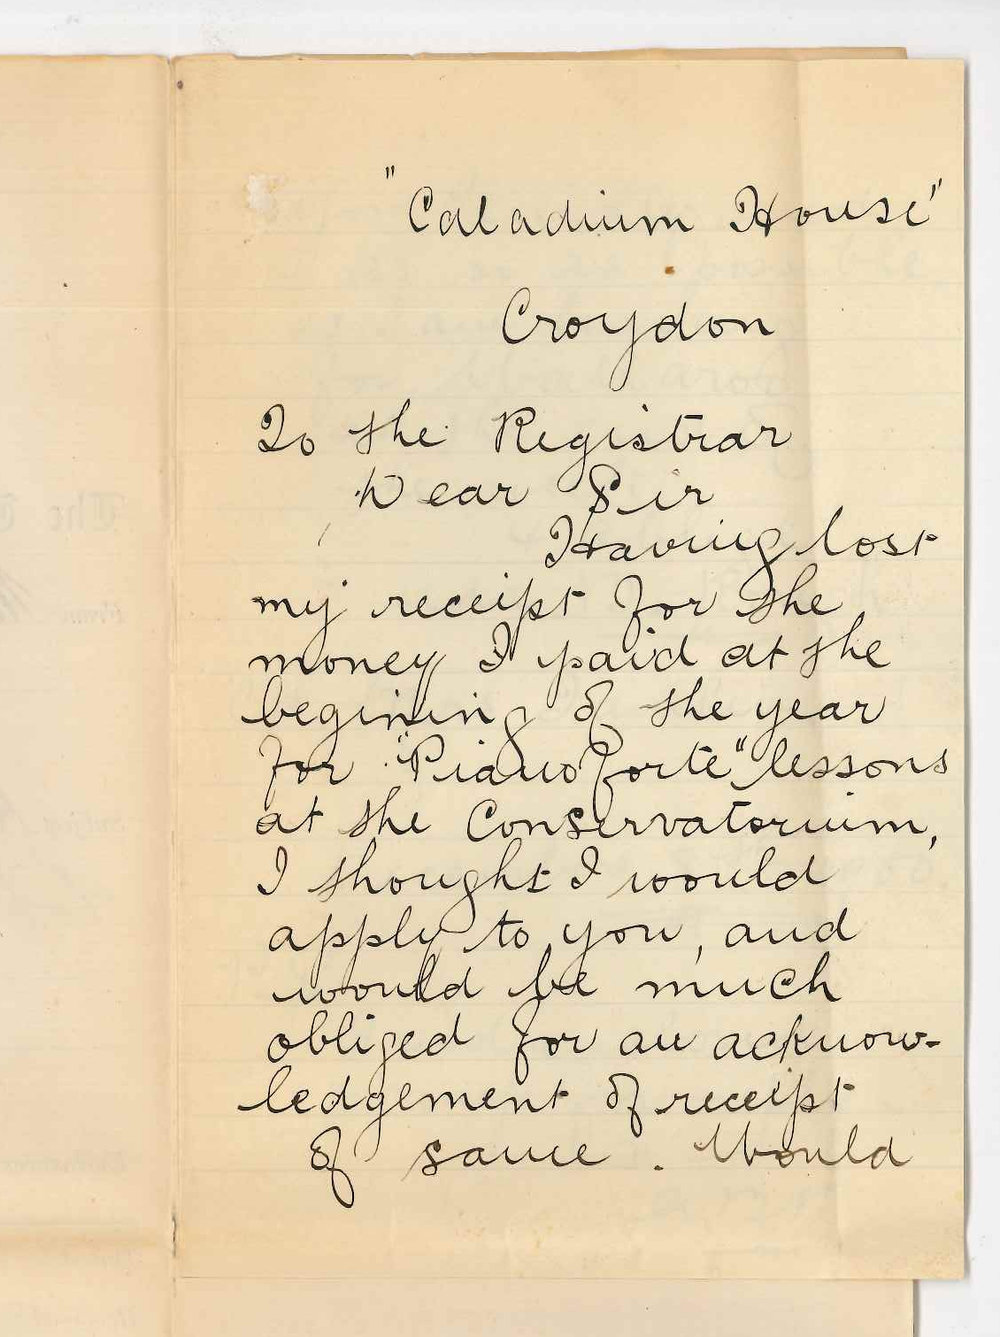 "Caladium House"
Croydon
To the Registrar
Dear Sir
Having lost
my receipt for the
money I paid at the
begining of the year
for "Pianoforte" lessons
at the Conservatorium,
I thought I would
apply to you, and
would be much
obliged for an acknow-
ledgement of receipt
of same. Would